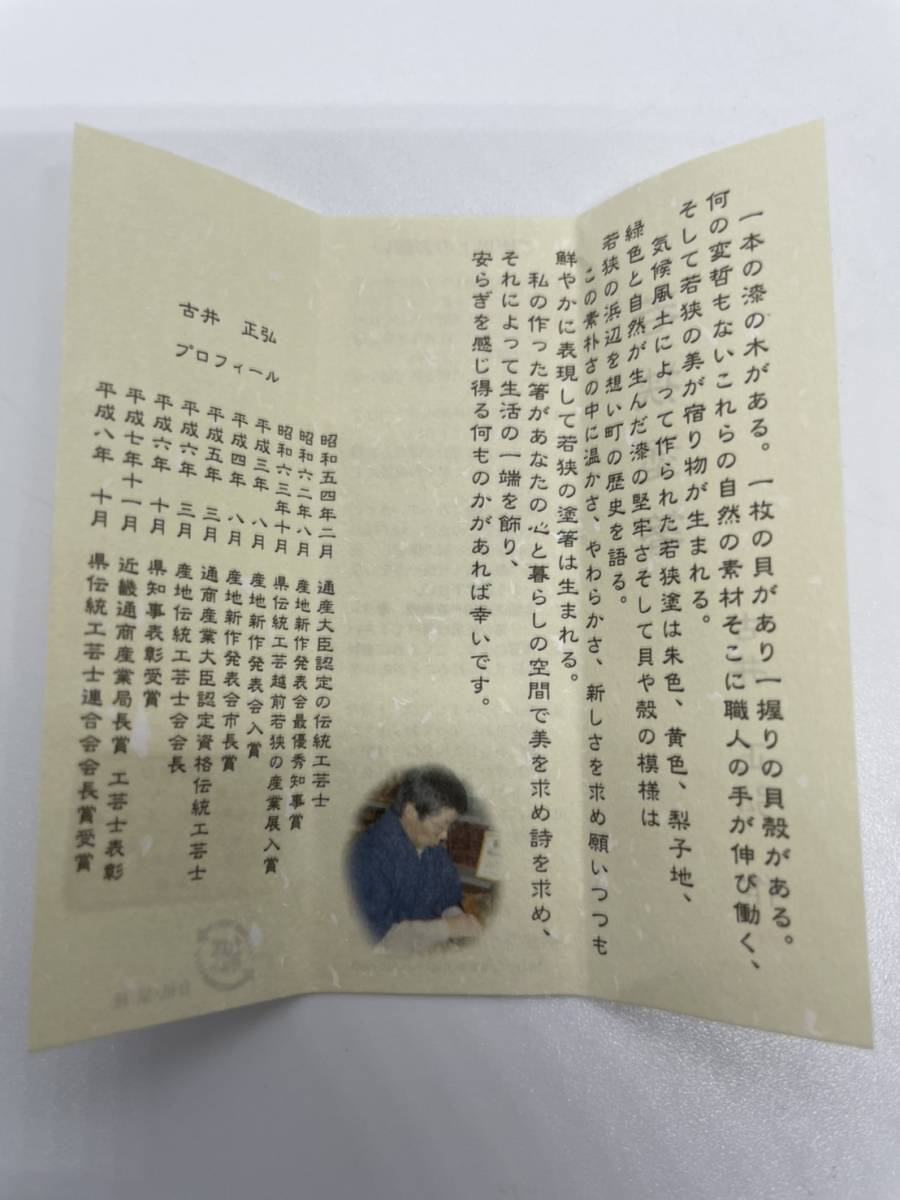 一本の漆の木がある。一枚の貝があり一握りの貝殻がある。
何の変哲もないこれらの自然の素材そこに職人の手が伸び働く、
そして若狭の美が宿り物が生まれる。
気候風土によって作られた若狭塗は朱色、黄色、梨子地、
緑色と自然が生んだ漆の堅牢さそして貝や殻の模様は
若狭の浜辺を想い町の歴史を語る。
この素朴さの中に温かさ、やわらかさ、新しさを求め願いつつも
鮮やかに表現して若狭の塗箸は生まれる。
私の作った箸があなたの心と暮らしの空間で美を求め詩を求め、
それによって生活の一端を飾り、
安らぎを感じ得る何ものかがあれば幸いです。
古井 正弘
プロフィール
昭和五四年二月 通産大臣認定の伝統工芸士
昭和六二年八月 産地新作発表会最優秀知事賞
昭和六三年十月 県伝統工芸越前若狭の産業展入賞
平成三年 八月 産地新作発表会入賞
平成四年 八月 産地新作発表会市長賞
平成五年 三月 通商産業大臣認定資格伝統工芸士
平成六年 三月 産地伝統工芸士会会長
平成六年 十月 県知事表彰受賞
平成七年十一月 近畿通商産業局長賞 工芸士表彰
平成八年 十月 県伝統工芸士連合会会長賞受賞